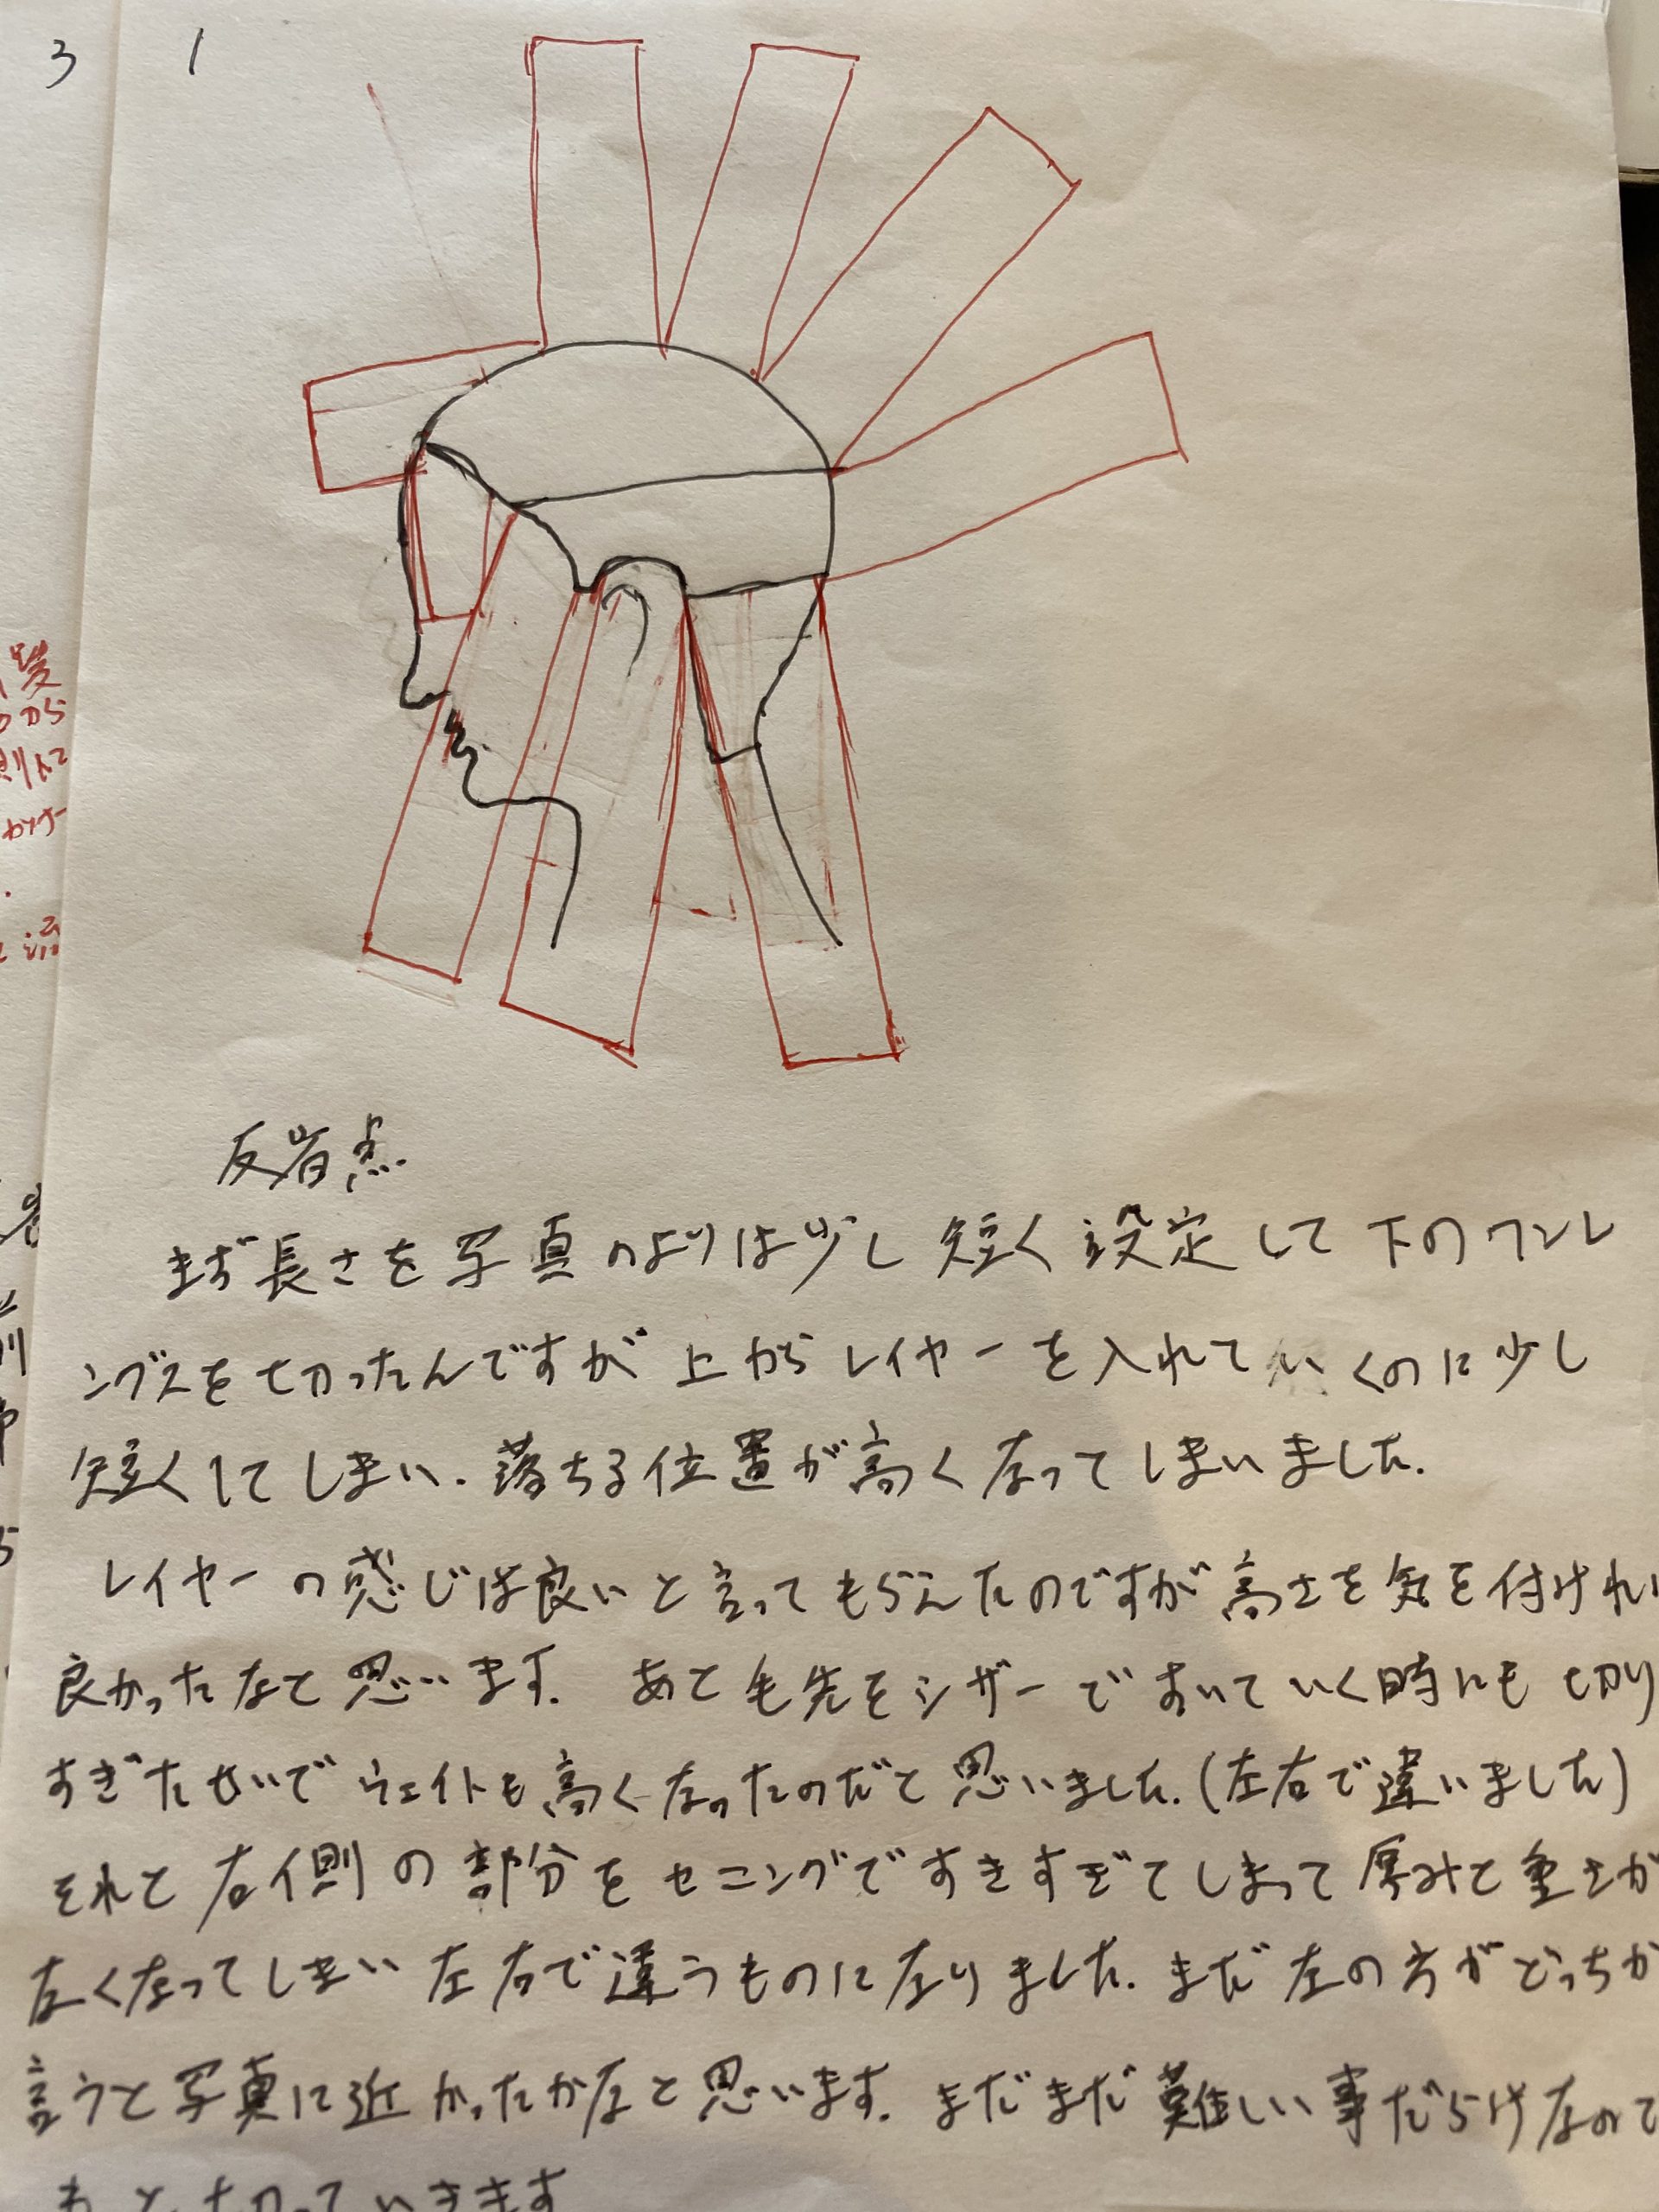 3
1
髪
から
側に
カットー
反省点.
まず長さを写真のよりは少し短く設定して下のワンレ
ングスを切ったんですが上からレイヤーを入れていくのに少し
短くしてしまい、落ちる位置が高くなってしまいました.
レイヤーの感じは良いと言ってもらえたのですが高さを気を付けれ
良かったなと思います. あと毛先をシザーですいていく時にも切り
すぎたせいでウェイトも高くなったのだと思いました.(左右で違いました)
それと右側の部分をセニングですきすぎてしまって厚みと重さが
なくなってしまい左右で違うものになりました. まだ左の方がどっちか
言うと写真に近かったかなと思います. まだまだ難しい事だらけなので
もっと切っていきます